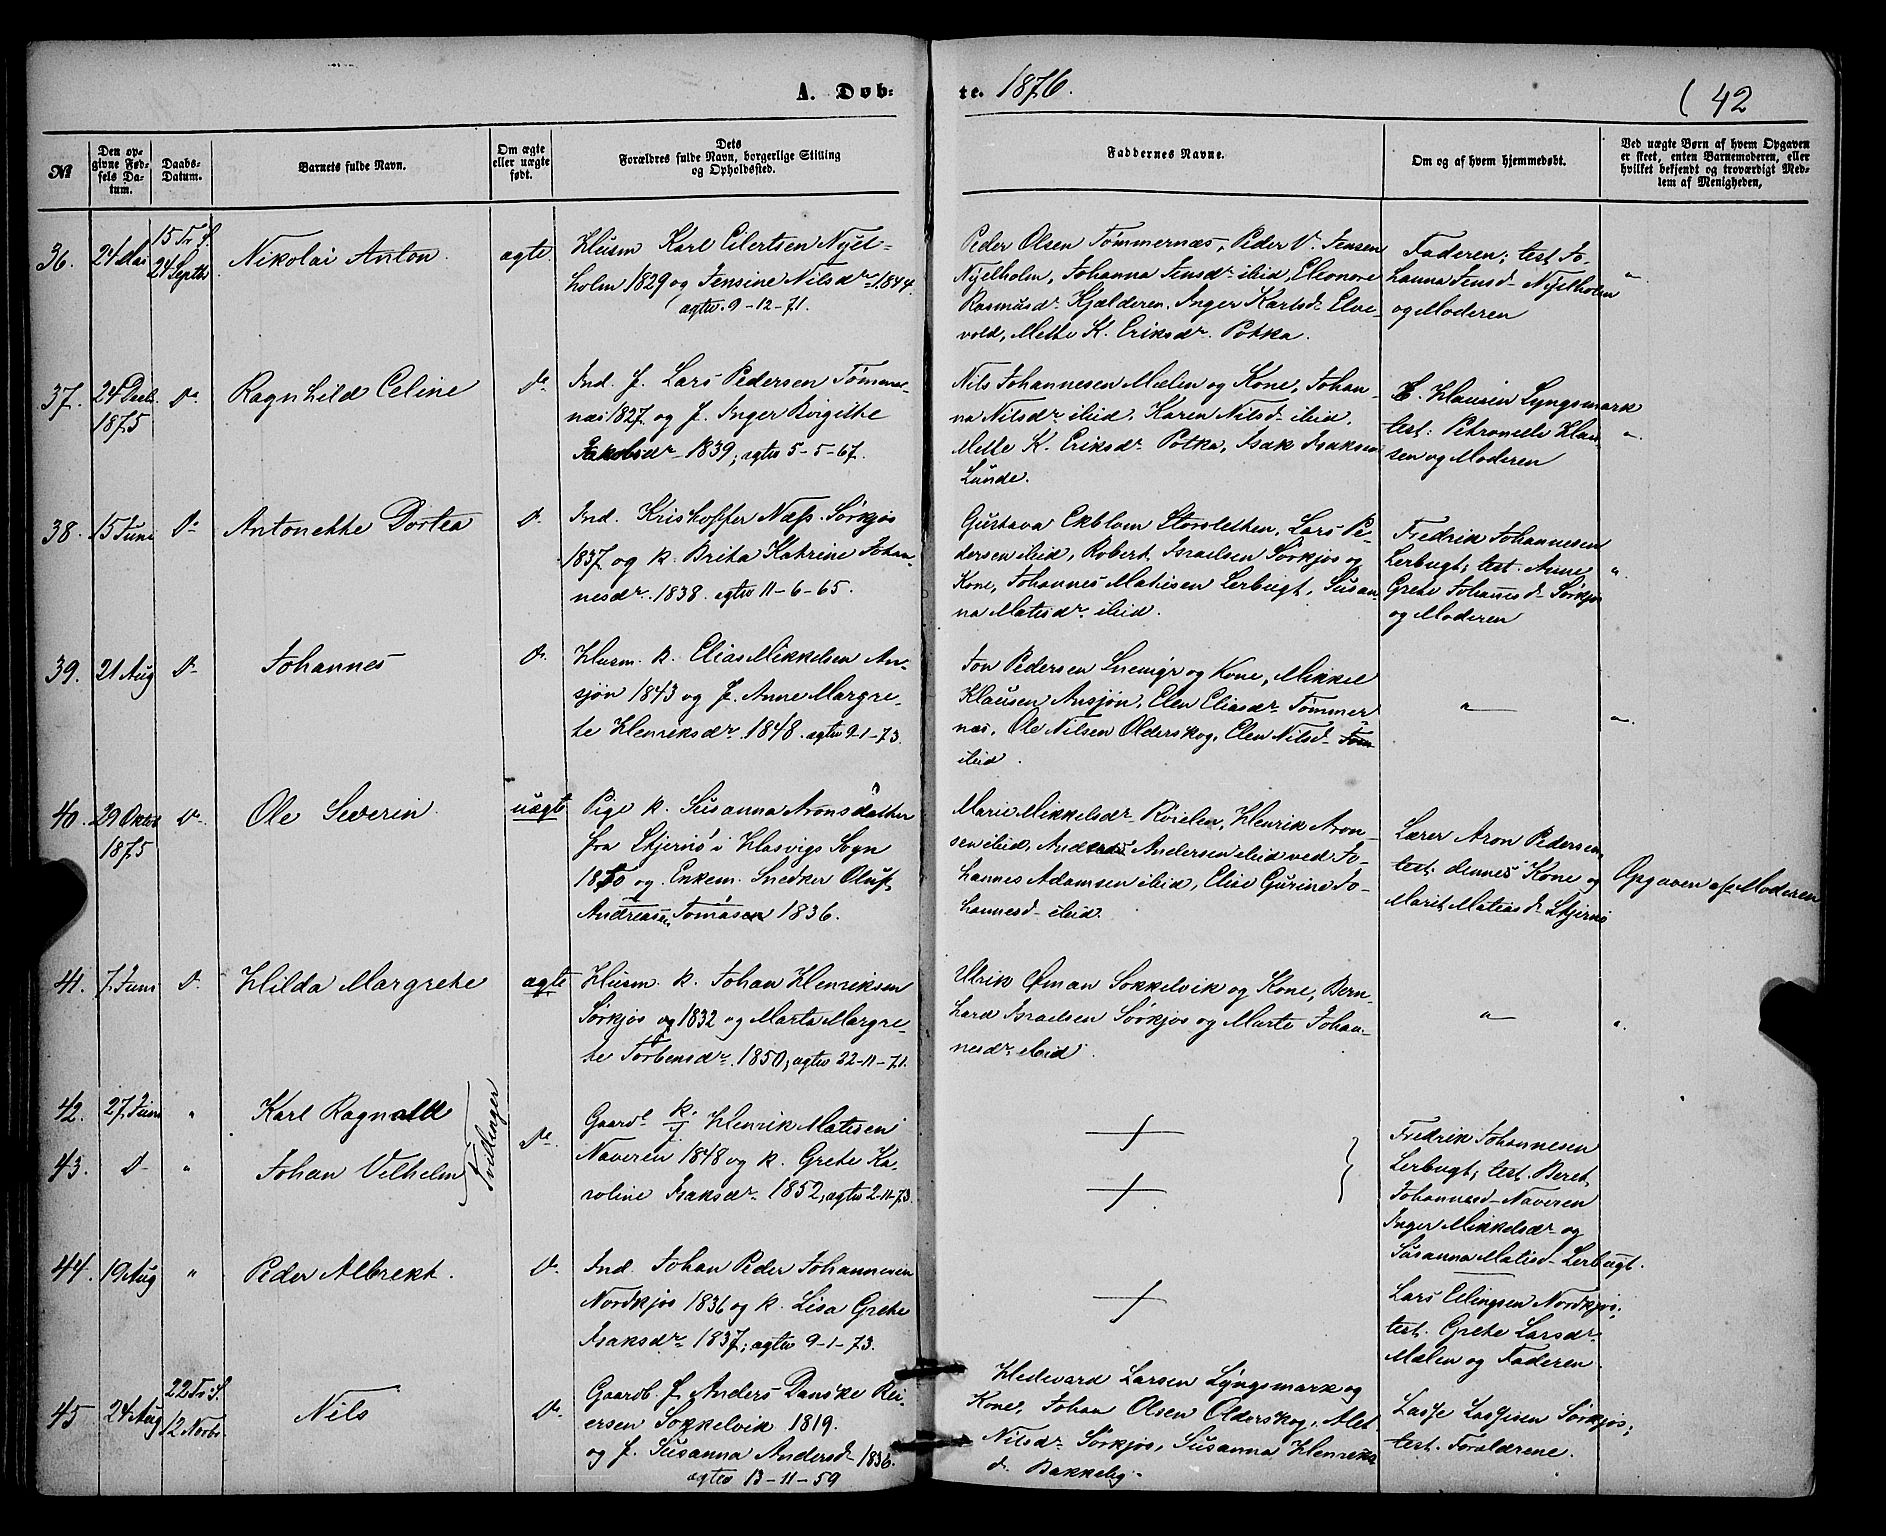 A. Døb-
te. 1876.
( 42
No
Den op-
givne Fød-
sels Da-
tum.
Daabs-
Datum.
Barnets fulde Navn.
Om ægte
eller uægte
født.
Dets
Forældres fulde Navn, borgerlige Stilling
og Opholdssted.
Faddernes Navne.
Om og af hvem hjemmedøbt.
Ved uægte Børn af hvem Opgaven
er skeet, enten Barnemoderen, eller
hvilket bekjendt og troværdigt Med-
lem af Menigheden,
36. 24 Mai
15 Tr. S.
24 Septb
Nikolai Anton.
ægte
Husm Karl Eilertsen Nyel-
holm 1829 og Jensine Nilsdr 1844.
(agtev. 9-12-71.
Peder Olsen Tømmernæs, Peder V. Jensen
Nyelholm, Johanna Jensdr ibid, Eleonore
Rasmusdr Kjælderen, Inger Karlsd. Elve-
vold, Mette K. Eriksdr. Potka.
Faderen; test Jo-
hanna Jensd- Nyelholm
og Moderen
"
37. 24 Decb.
1875
Do
Ragnhild Celine
Do
Ind. f. Lars Pedersen Tømmer-
næs 1827 og f. Inger Birgitte
Jakobsdr 1839; agtev 5-5-67.
Nils Johannesen Mælen og Kone, Johan-
na Nilsdr ibid, Karen Nilsd- ibid,
Mette K. Eriksdr Potka, Isak Isaksen
Lunde.
E. Hansen Lyngsmark
test: Petronelle Han-
sen og Moderen
"
38. 15 Juni
Do
Antonette Dortea
Do
Ind. Kristoffer Næss Sørkjos
1837 og k. Brita Katrine Johan-
nesdr. 1838. agtev 11-6-65.
Gustava Ekblom Storsletten, Lars Pe-
dersen ibid, Robert Israelsen Sørkjos og
Kone, Johannes Matisen Lerbugt, Susan-
na Matisdr ibid.
Fredrik Johannesen
Lerbugt; test. Anne
Grete Johannesd- Sørkjos
og Moderen
"
39. 21 Aug
Do
Johannes
Do
Husm. k. Elias Mikkelsen An-
sjøn 1843 og f. Anne Margre-
te Henriksdr. 1848. agtev 9-1-73.
Jon Pedersen Snemyr og Kone, Mikkel
Klausen Ansjøn, Elen Eliasdr Tømmer-
næs, Ole Nilsen Olderskog, Elen Nilsd-
ibid.
"
"
40. 29 Oktb
1875
Do
Ole Severin.
uægte
Pige k. Susanna Aronsdatter
fra Stjernø i Hasvigs Sogn
1850 og Enkem. Snedker Oluf
Andreasen Tomasen 1836.
Marie Mikkelsdr Röielen, Henrik Aron-
sen ibid, Andreas Andersen ibid ved Jo-
hannes Adamsen ibid, Elise Gurine Jo-
hannesd- ibid.
Lærer Aron Pedersen,
test: dennes Kone og
Marit Matiasd- Stjernø
Opgaven af Moderen
41. 7 Juni
Do
Hilda Margrete
ægte
Husm. k. Johan Henriksen
Sørkjos 1832 og Marta Margre-
te Torbensdr 1850; agtev 22-11-71.
Ulrik Öman Sokkelvik og Kone, Bern-
hard Israelsen Sørkjos og Marte Johan-
nesdr ibid.
"
"
42. 27 Juni
"
Karl Ragnald
43. Do
"
Johan Vilhelm
Tvillinger
Do
Gaardb k./f Henrik Matisen
Naveren 1848 og k. Grete Ka-
roline Isaksdr 1852, agtev 2-11-73.
Fredrik Johannesen
Lerbugt; test. Beret
Johannesd- Naveren
Inger Mikkelsdr og
Susanna Matisd- Lerbugt.
44. 19 Aug
"
Peder Albrekt.
Do
Ind. Johan Peder Johannesen
Nordkjos 1836 og k. Lisa Grete
Isaksdr 1837; agtev 9-1-73.
Lars Elingsen Nordkjos,
test. Grete Larsdr
Mælen og Faderen.
45. 24 Aug
22 Tr: S.
12 Novbr
Nils
Do
Gaardb. f. Anders Danske Rei-
ersen Sokkelvik 1819.
og f. Susanna Andersd- 1836.
agtev 13-11-59
Hedevard Larsen Lyngsmark og
Kone, Johan Olsen Olderskog, Alet
Nilsdr Sørkjos, Susanna Henriks-
dr Bakkeby.
Lasse Lassesen Sørkjos;
test. Forældrene.